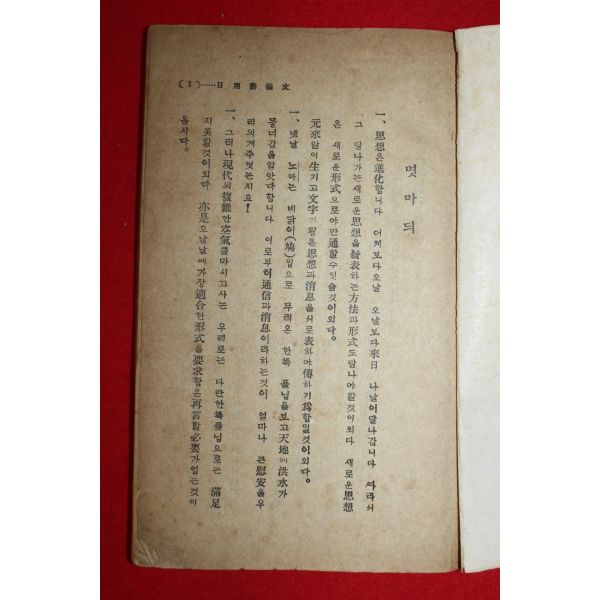 文翰書用日……〔1〕
멧마듸
一、思想은進化합니다 어제보다오늘 오늘보다來日 나날이달나갑니다 ᄯᅡ라서
그 달나가는새로운思想을發表하는方法과形式도달나야할것이외다 새로운思想
은 새로운形式으로야만通할수잇슬것이외다。
元來말이生기고文字가됨은思想과消息을서로表하야傳하기爲함일것이외다。
一、녯날 노아는 비닭이(鳩)입으로 무러온 한ᄶᅩᆨ 풀닙을보고天地에洪水가
물너감을알앗다합니다 이로부터通信과消息이라하는것이 얼마나 큰慰安을우
리의게주엇는지요!
一、그러나現代의複雜한空氣를마시고사는 우리로는 다만한ᄶᅩᆨ풀닙으로는 滿足
지못할것이외다 亦是오날날에가장適合한形式을要求함은再言할必要가업는것이
올시다。